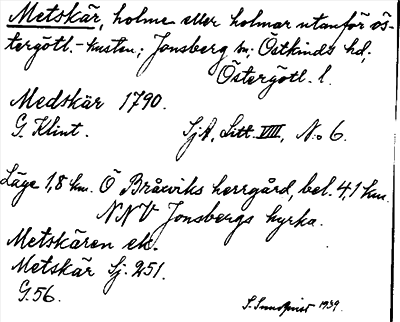 Metskär, holme eller holmar utanför ös-
tergötl.-kusten; Jonsberg sn; Östkinds hd,
Östergötl. l.
Medskär 1790.
G. Klint. SjA, Litt. VIII, No 6.
Läge 1,8 km. Ö Bråxviks herrgård, bel. 4,1 km.
NNV Jonsbergs kyrka.
Metskären ek.
Metskär Sj. 251.
G.56.
S. Sundqvist 1939.